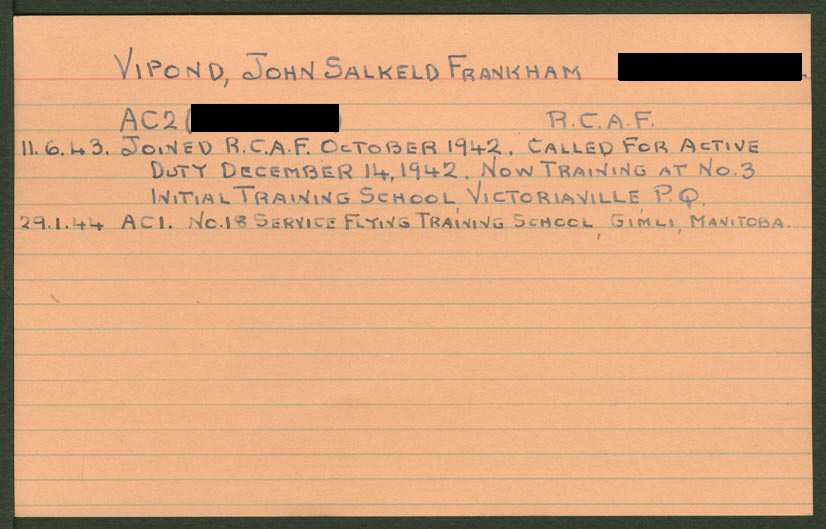 VIPOND, JOHN SALKELD FRANKHAM
AC2 ( ) R.C.A.F.
11.6.43. JOINED R.C.A.F. OCTOBER 1942. CALLED FOR ACTIVE
DUTY DECEMBER 14, 1942. NOW TRAINING AT NO.3
INITIAL TRAINING SCHOOL VICTORIAVILLE P.Q.
29.1.44 AC1. NO.18 SERVICE FLYING TRAINING SCHOOL, GIMLI, MANITOBA.